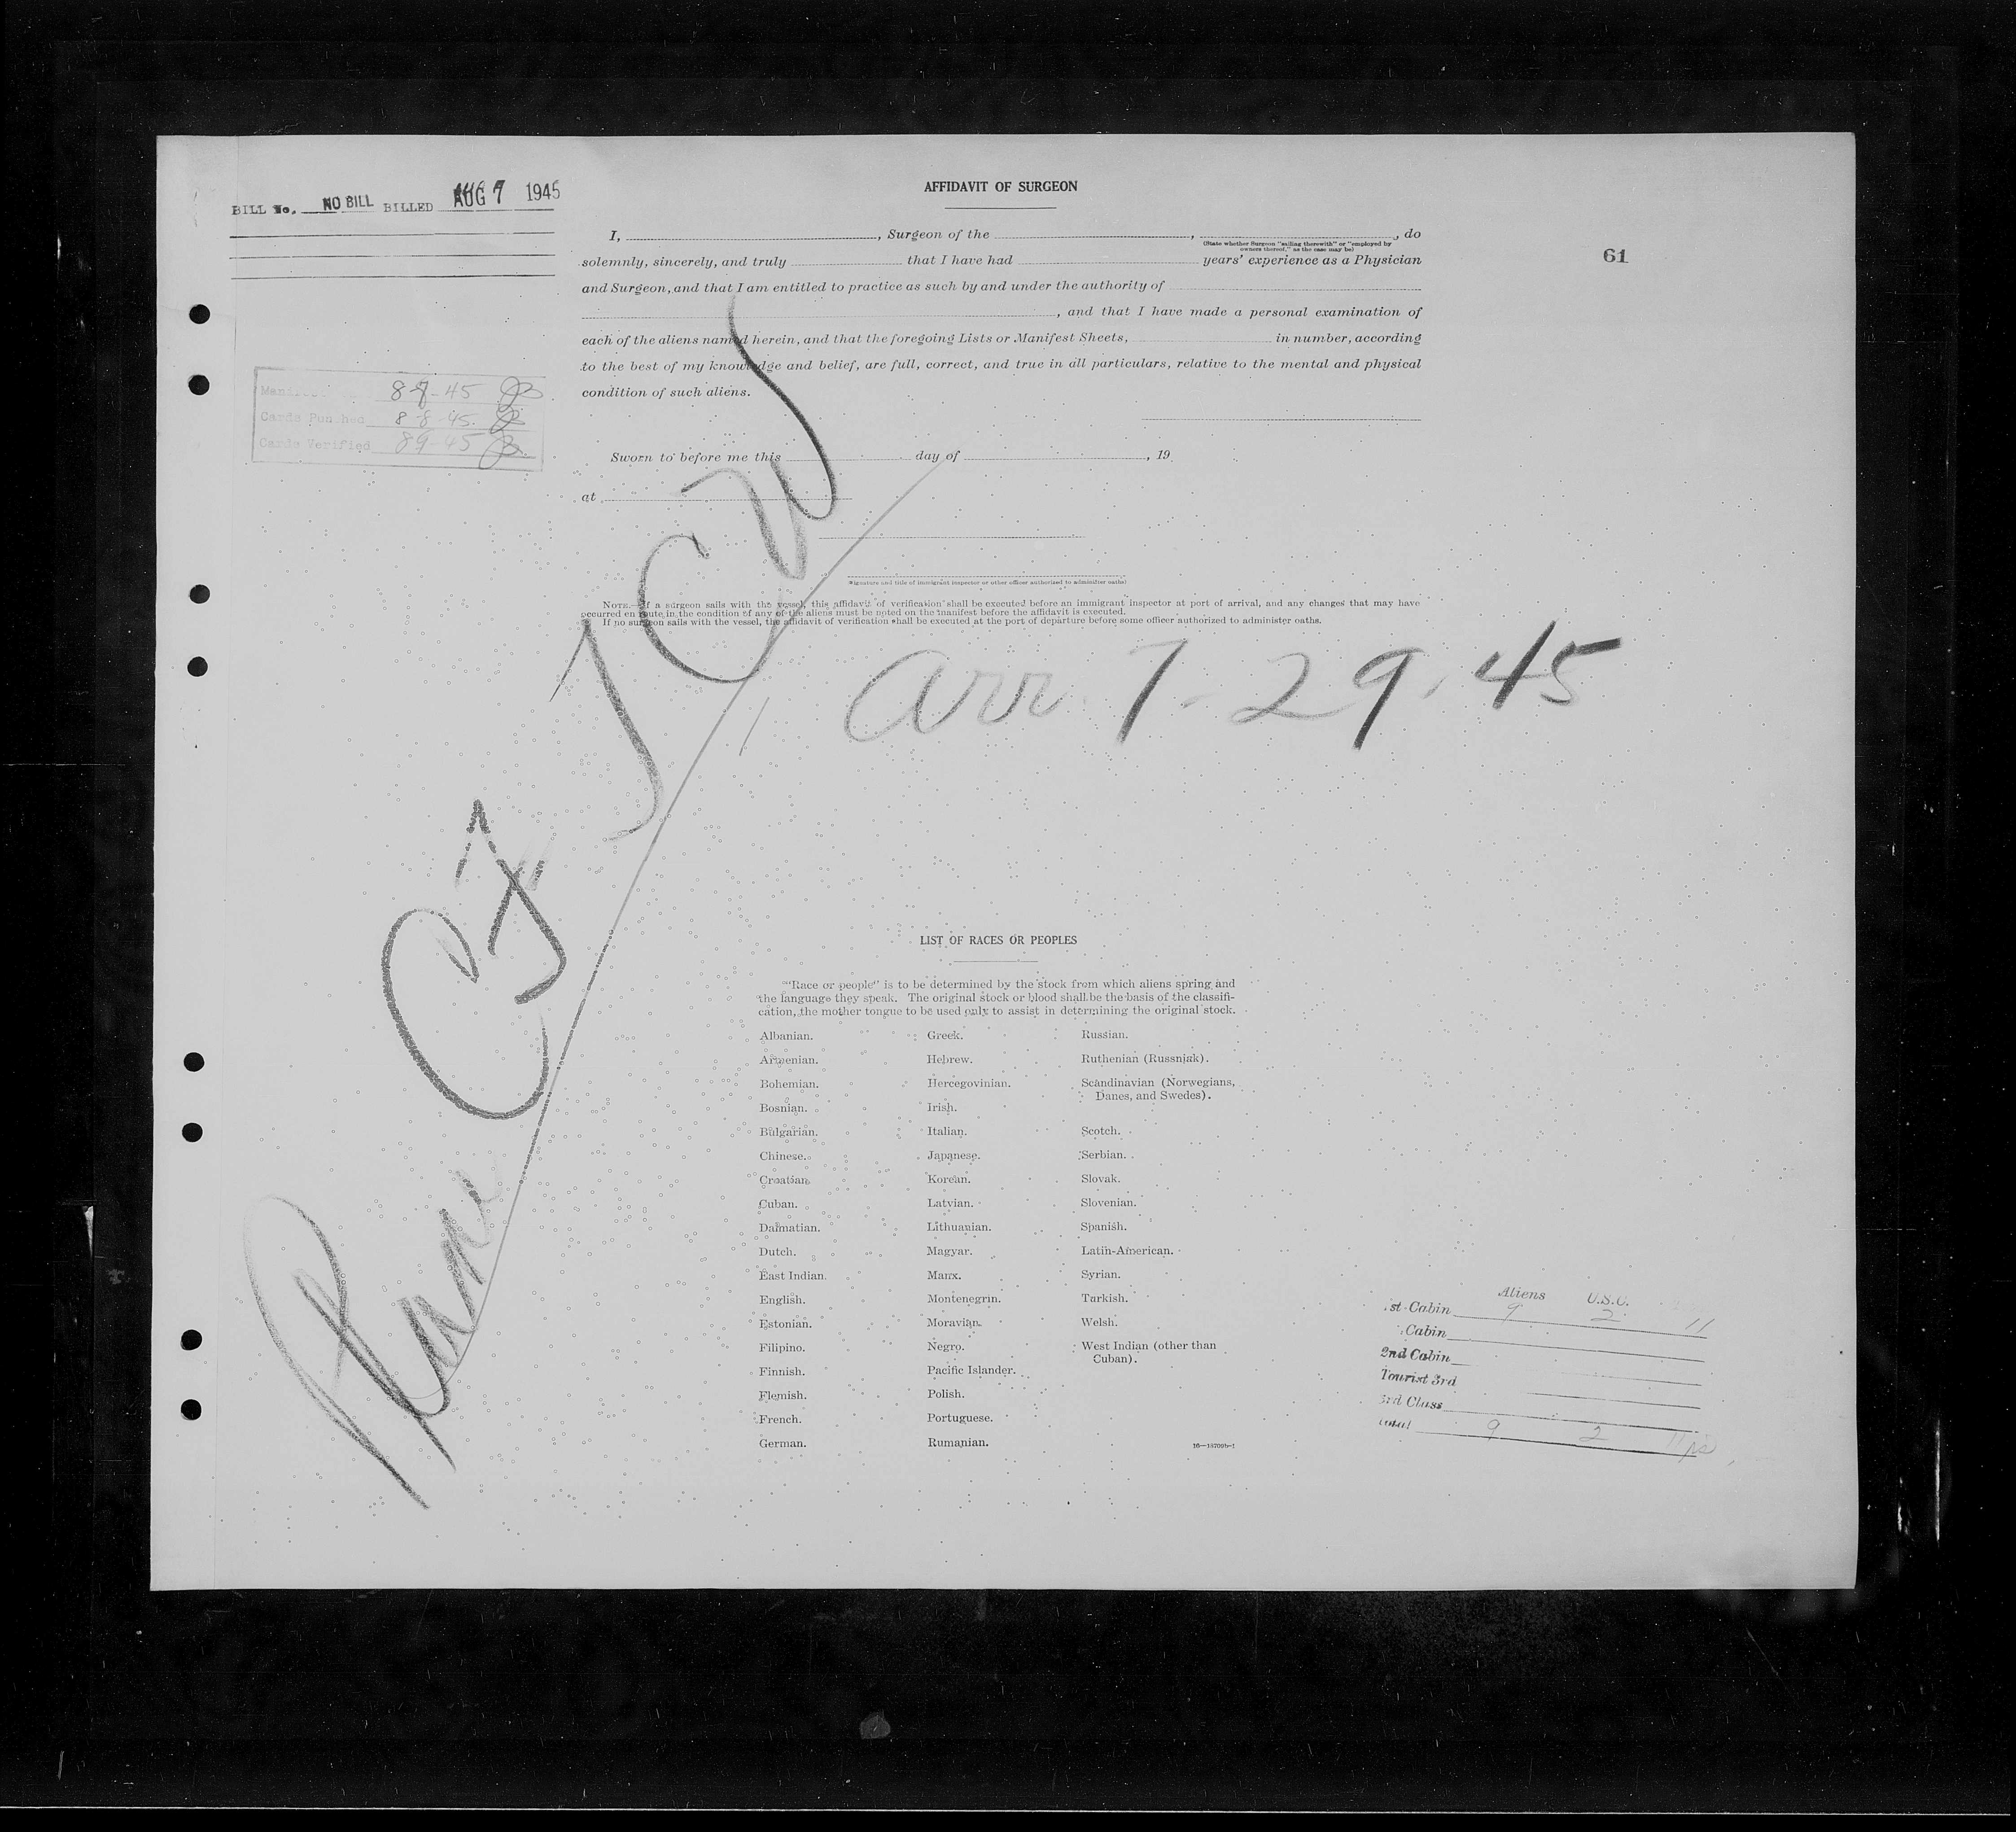 BILL No. NO BILL BILLED AUG 7 1945
AFFIDAVIT OF SURGEON
61
I, , Surgeon of the , , do
(State whether Surgeon "sailing therewith" or "employed by
owners thereof," as the case may be)
solemnly, sincerely, and truly that I have had years' experience as a Physician
and Surgeon, and that I am entitled to practice as such by and under the authority of
, and that I have made a personal examination of
each of the aliens named herein, and that the foregoing Lists or Manifest Sheets, in number, according
to the best of my knowledge and belief, are full, correct, and true in all particulars, relative to the mental and physical
condition of such aliens.
8-7-45
Cards Punched 8-8-45
Cards Verified 8-9-45
Sworn to before me this day of , 19
at
(Signature and title of immigrant inspector or other officer authorized to administer oaths)
NOTE.—If a surgeon sails with the vessel, this affidavit of verification shall be executed before an immigrant inspector at port of arrival, and any changes that may have
occurred en route in the condition of any of the aliens must be noted on the manifest before the affidavit is executed.
If no surgeon sails with the vessel, the affidavit of verification shall be executed at the port of departure before some officer authorized to administer oaths.
Plane CF
arr 7-29-45
LIST OF RACES OR PEOPLES
"Race or people" is to be determined by the stock from which aliens spring and
the language they speak. The original stock or blood shall be the basis of the classifi-
cation, the mother tongue to be used only to assist in determining the original stock.
Albanian.
Armenian.
Bohemian.
Bosnian.
Bulgarian.
Chinese.
Croatian.
Cuban.
Dalmatian.
Dutch.
East Indian.
English.
Estonian.
Filipino.
Finnish.
Flemish.
French.
German.
Greek.
Hebrew.
Hercegovinian.
Irish.
Italian.
Japanese.
Korean.
Latvian.
Lithuanian.
Magyar.
Manx.
Montenegrin.
Moravian.
Negro.
Pacific Islander.
Polish.
Portuguese.
Rumanian.
Russian.
Ruthenian (Russniak).
Scandinavian (Norwegians,
Danes, and Swedes).
Scotch.
Serbian.
Slovak.
Slovenian.
Spanish.
Latin-American.
Syrian.
Turkish.
Welsh.
West Indian (other than
Cuban).
Aliens U.S.C.
1st Cabin 9 2 11
Cabin
2nd Cabin
Tourist 3rd
3rd Class
total 9 2 11